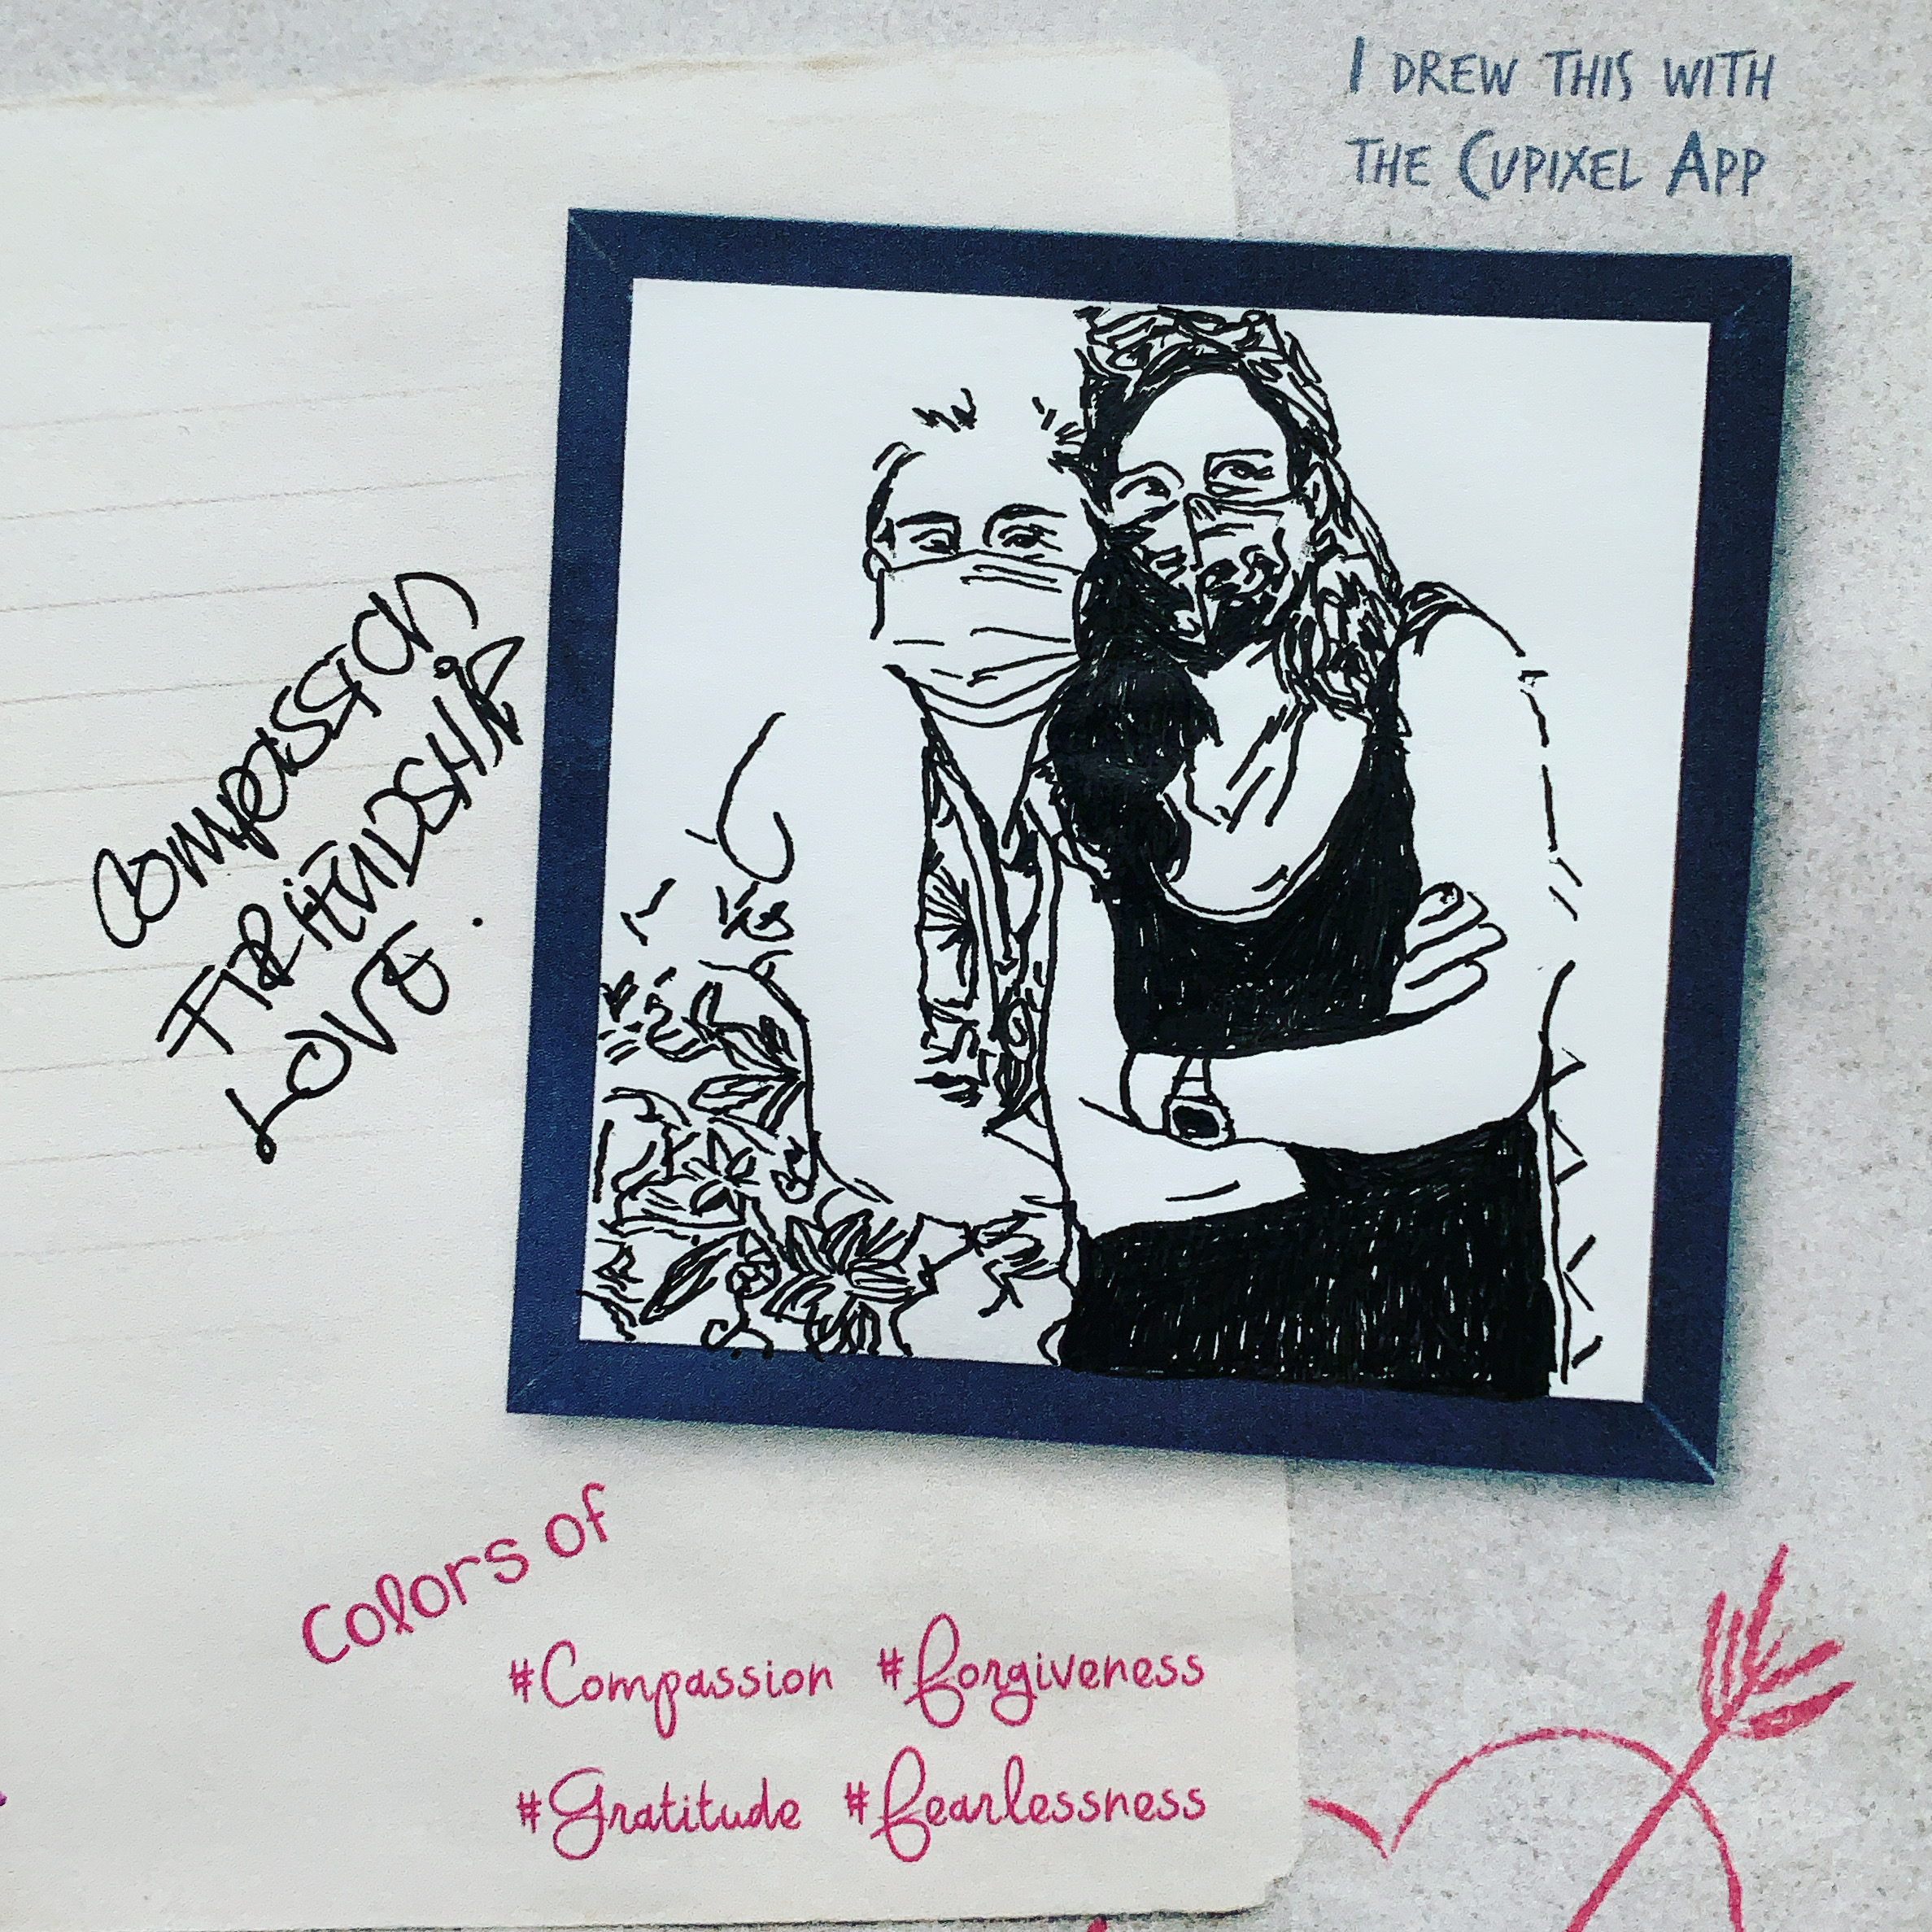 I DREW THIS WITH
THE CUPIXEL APP
COMPASSION
FRIENDSHIP
LOVE.
Colors of
#Compassion #forgiveness
#Gratitude #fearlessness